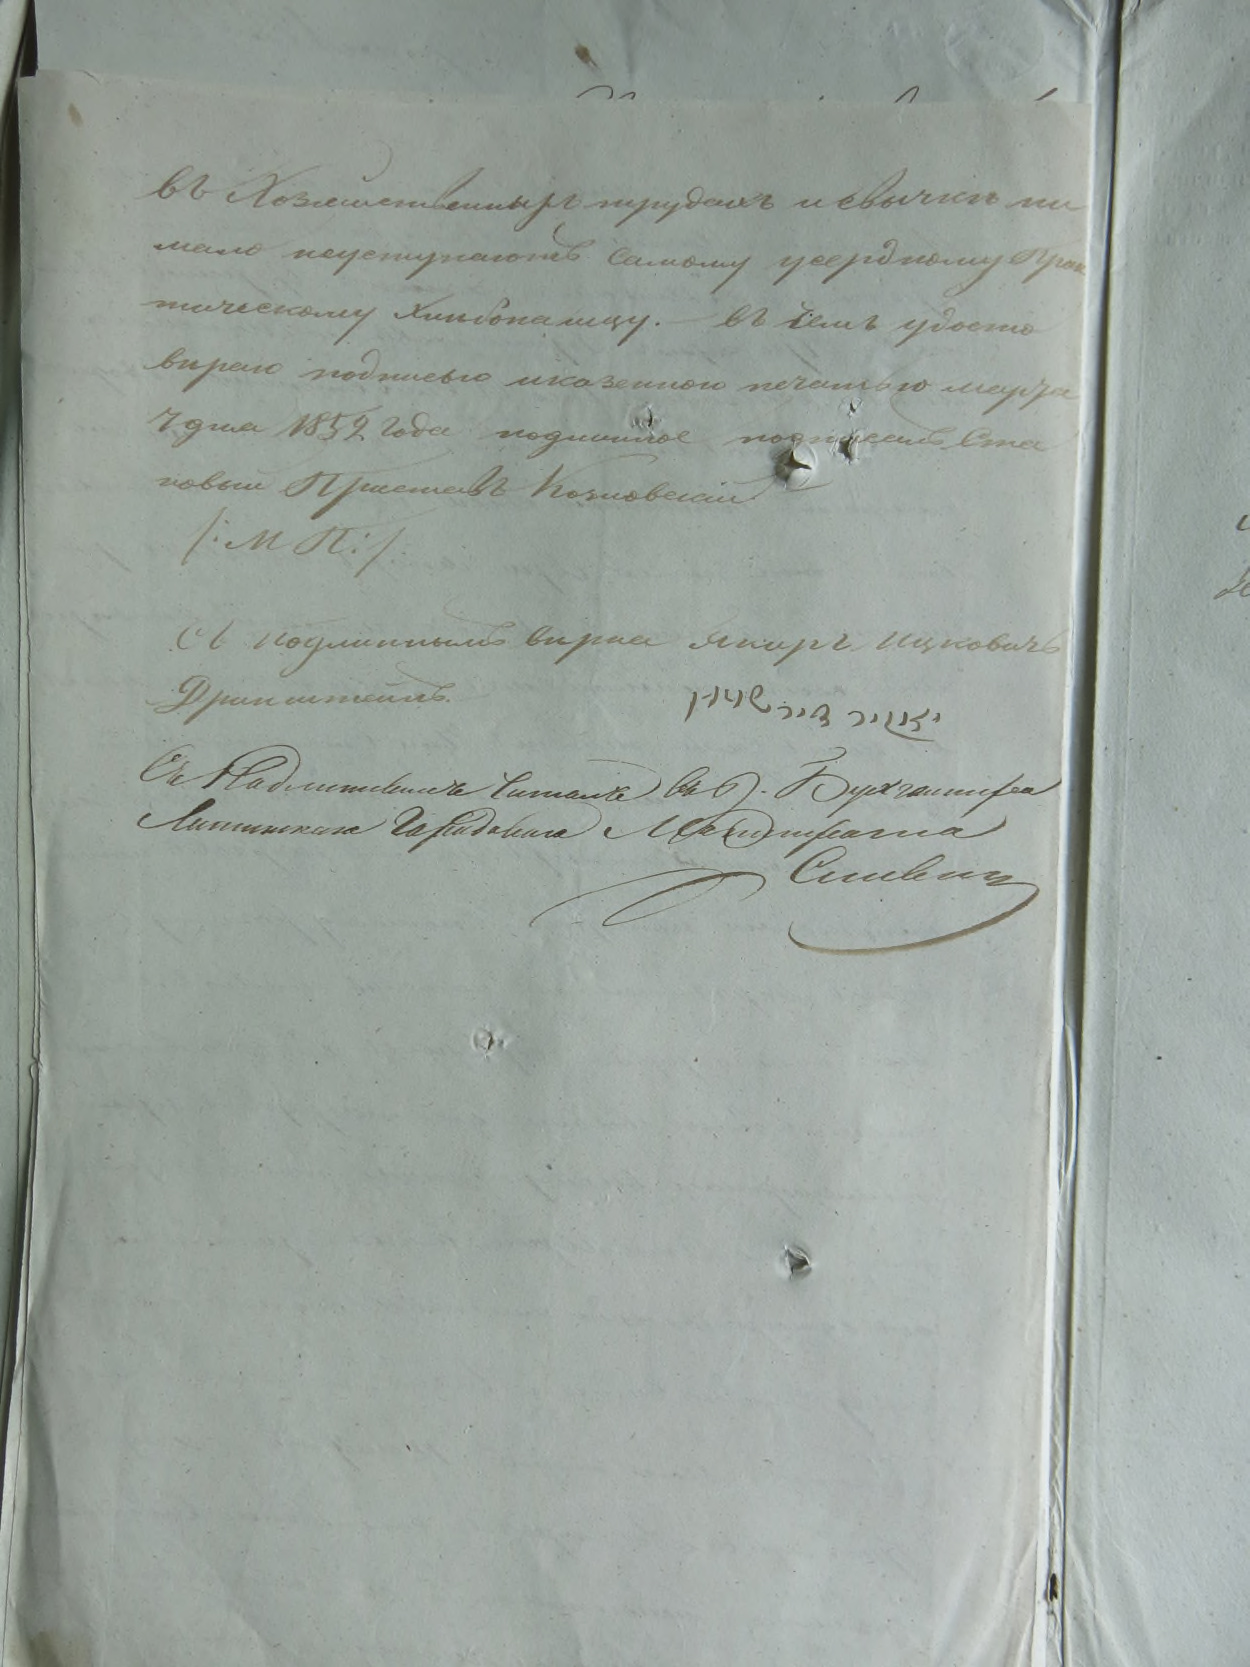 въ Хозяйственныхъ трудахъ и свычки ни
мало неуступаютъ самому усердному Прак
тическому Хлебопашцу. — въ чемъ удосто
веряю подписью и казенною печатью марта
7 дня 1852 года подлинное подписалъ Ста
новый Приставъ Козловский
/: М П :/.
Съ подлиннымъ верна Якиръ Ицковичъ
Дринштейнъ.
יאקיר דיר שטיין
Съ Подлиннымъ Читалъ Бухгалтера
Городоваго Магистрата